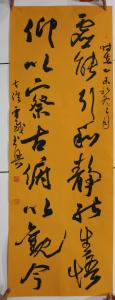 虚能引和静能生悟
仰以察古俯以觀今